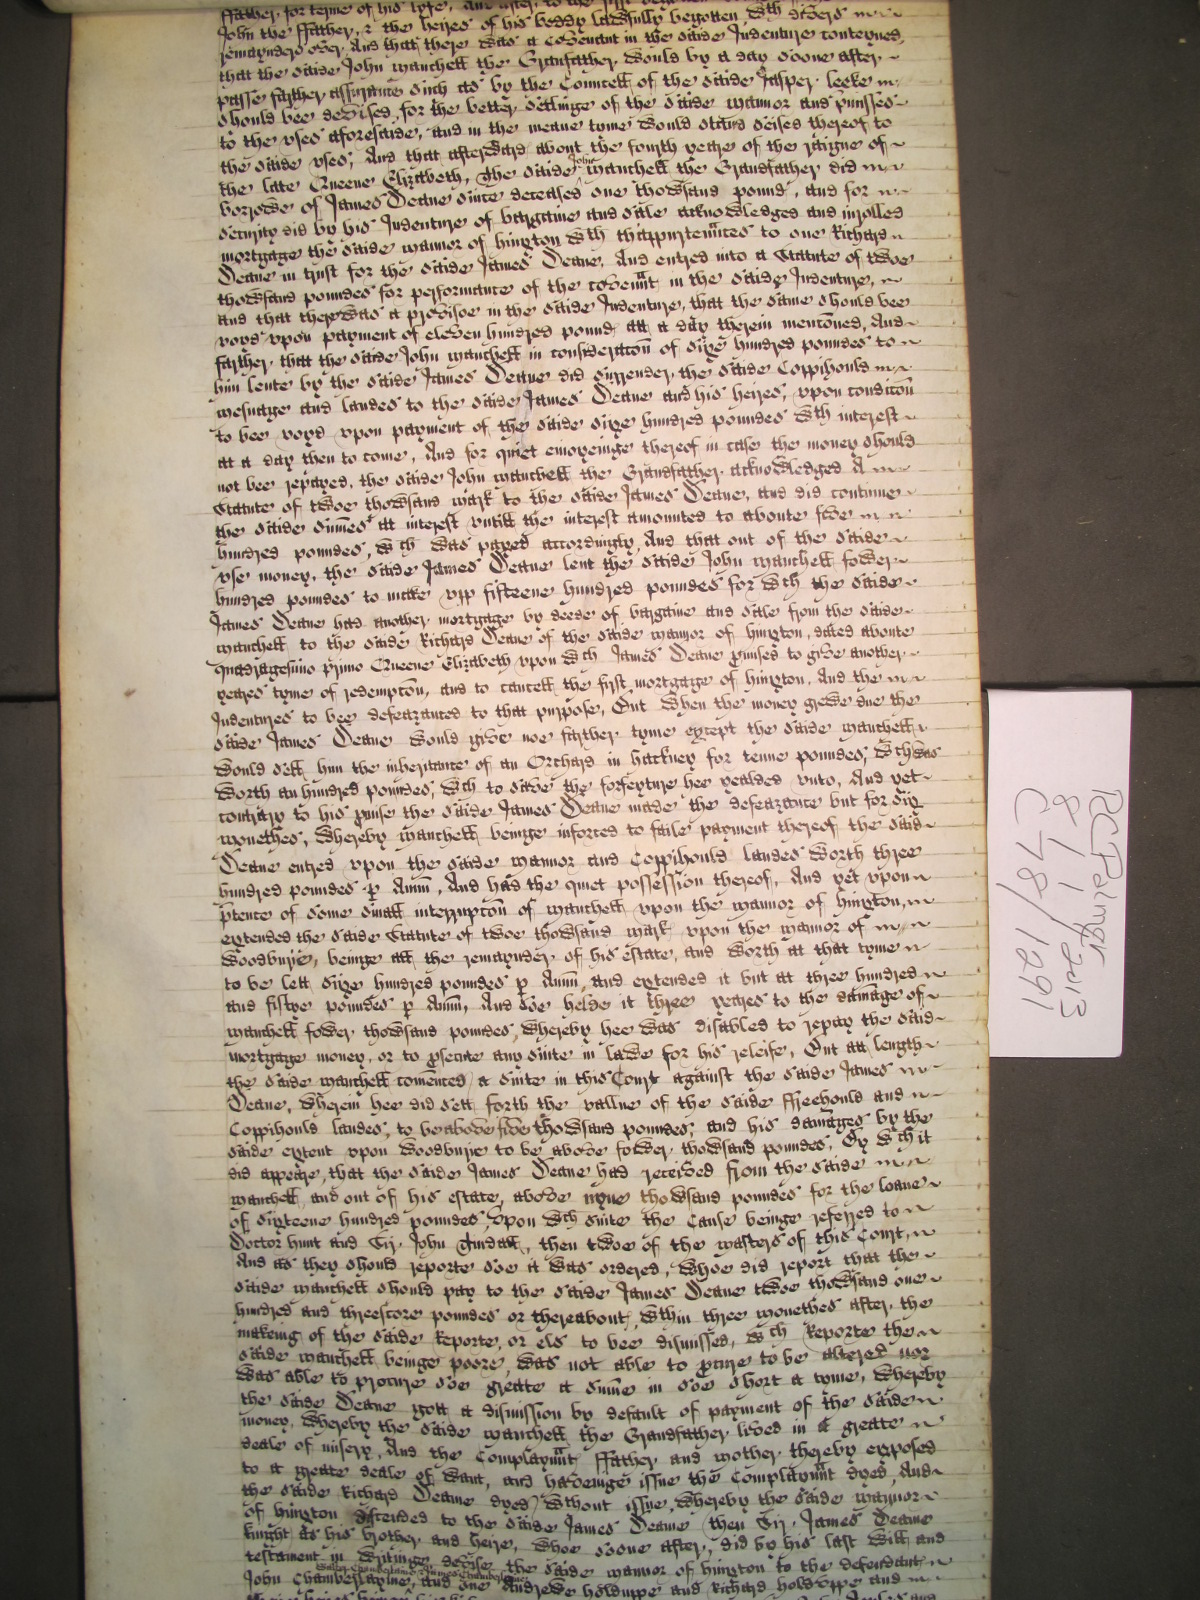 ffather, for terme of his lyfe, And after, to the first begotten
John the ffather, & the heires of his boddy lawfully begotten, wth divers
remaynders over, And that there was a Covenant in the saide Indenture conteyned,
that the saide John manchell the Grandfather would by a day soone after
passe further assurance such as by the Councell of the saide Jasper Leeke
should bee devised, for the better setlinge of the saide mannor and pmisses
to the vses aforesaide, and in the meane tyme would stand seised thereof to
the saide vses, And that afterward about the fourth yeare of the raigne of
the late Queene Elizabeth, the saide John manchell the Grandfather did
borrowe of James Deane since deceased one thowsand pound, and for
security did by his Indenture of bargaine and sale acknowledged and inrolled
mortgage the saide mannor of hington wth thappurtenncs to one Richard
Deane in trust for the saide James Deane, And entred into a Statute of twoe
thowsand poundes for performance of the covennt in the saide Indenture,
and that there was a provisoe in the saide Indenture, that the same should bee
voyd vpon payment of eleven hundred pound att a day therein menconed, And
farther that the saide John manchell in consideracon of sixe hundred poundes to
him lente by the saide James Deane did surrender the saide Coppihould
mesuage and landes to the saide James Deane and his heires, vpon condicon
to bee voyd vpon payment of the saide sixe hundred poundes wth interest
at a day then to come, And for quiet enioyeinge thereof in case the money should
not bee repayed, the saide John manchell the Grandfather acknowledged A
Statute of twoe thowsand mark to the saide James Deane, and did contynue
the saide sumes att interest vntill the interest amounted to aboute five
hundred poundes, wch was payed accordingly, And that out of the saide
vse money, the saide James Deane lent the saide John manchell fower
hundred poundes to make vpp fifteene hundred poundes for wch the saide
James Deane had another mortgage by deede of bargaine and sale from the saide
manchell to the saide Richard Deane of the saide mannor of hington, dated aboute
quadragesimo primo Queene Elizabeth vpon wch James Deane pmised to give another
yeares tyme of redempcon, and to cancell the first mortgage of hington, And the
Indentures to bee defeazanced to that purpose, But when the money grewe due the
saide James Deane would give noe farther tyme except the saide manchell
would sell him the inheritance of an Orchard in hackney for tenne poundes, wch was
worth an hundred poundes, wch to save the forfeyture hee yealded vnto, And yet
contrary to his pmise the saide James Deane made the defeazance but for six
monethes, whereby manchell beinge inforced to faile payment thereof the said
Deane entred vpon the saide mannor and Coppihould landes worth three
hundred poundes p Annu, And had the quiet possession thereof, And yet vpon
ptence of some small interrupcon of manchell vpon the mannor of hington,
extended the saide Statute of twoe thowsand mark vpon the mannor of
Woodburie, beinge all the remaynder of his estate, and worth at that tyme
to be lett sixe hundred poundes p Annu, and extended it but at three hundred
and fiftye poundes p Annu, And soe helde it three yeares to the damage of
manchell fower thowsand poundes, whereby hee was disabled to repay the said
mortgage money, or to psecute any suite in lawe for his releife, But att length
the saide manchell comenced a suite in this Court against the saide James
Deane, wherein hee did sett forth the vallue of the saide ffreehould and
Coppihould landes, to be above five thowsand poundes, and his damages by the
saide extent vpon Woodburie to be above fower thowsand poundes, By wch it
did appeare, that the saide James Deane had received from the saide
manchell, and out of his estate, above nyne thowsand poundes for the loane
of sixteene hundred poundes, Vpon wch suite the Cause beinge referred to
Doctor hunt and Sir John Tindall, then twoe of the masters of this Court,
And as they shoud reporte soe it was ordered, whoe did report that the
saide manchell should pay to the saide James Deane twoe thowsand one
hundred and threescore poundes or thereabout, wthin three monethes after the
makeing of the saide Reporte, or els to bee dismissed, wch Reporte the
saide manchell beinge poore, was not able to pcure to be altered nor
was able to procure soe greate a sume in soe short a tyme, whereby
the saide Deane gott a dismission by default of payment of the saide
money, whereby the saide manchell the Grandfather lived in A greate
deale of misery, And the Complaynnt ffather and mother thereby exposed
to a greate deale of want, and haveinge issue the Complaynnt dyed, And
the saide Richard Deane dyed without issue, whereby the saide mannor
of hington descended to the saide James Deane then Sir James Deane
knight as his brother and heire, whoe soone after, did by his last will and
testament in writinge devise the saide mannor of hington to the defendant
John Chamberlayne, and one Andrewe holduppe and Richard holduppe and
RCPalmer
8/1/2013
C78/1291